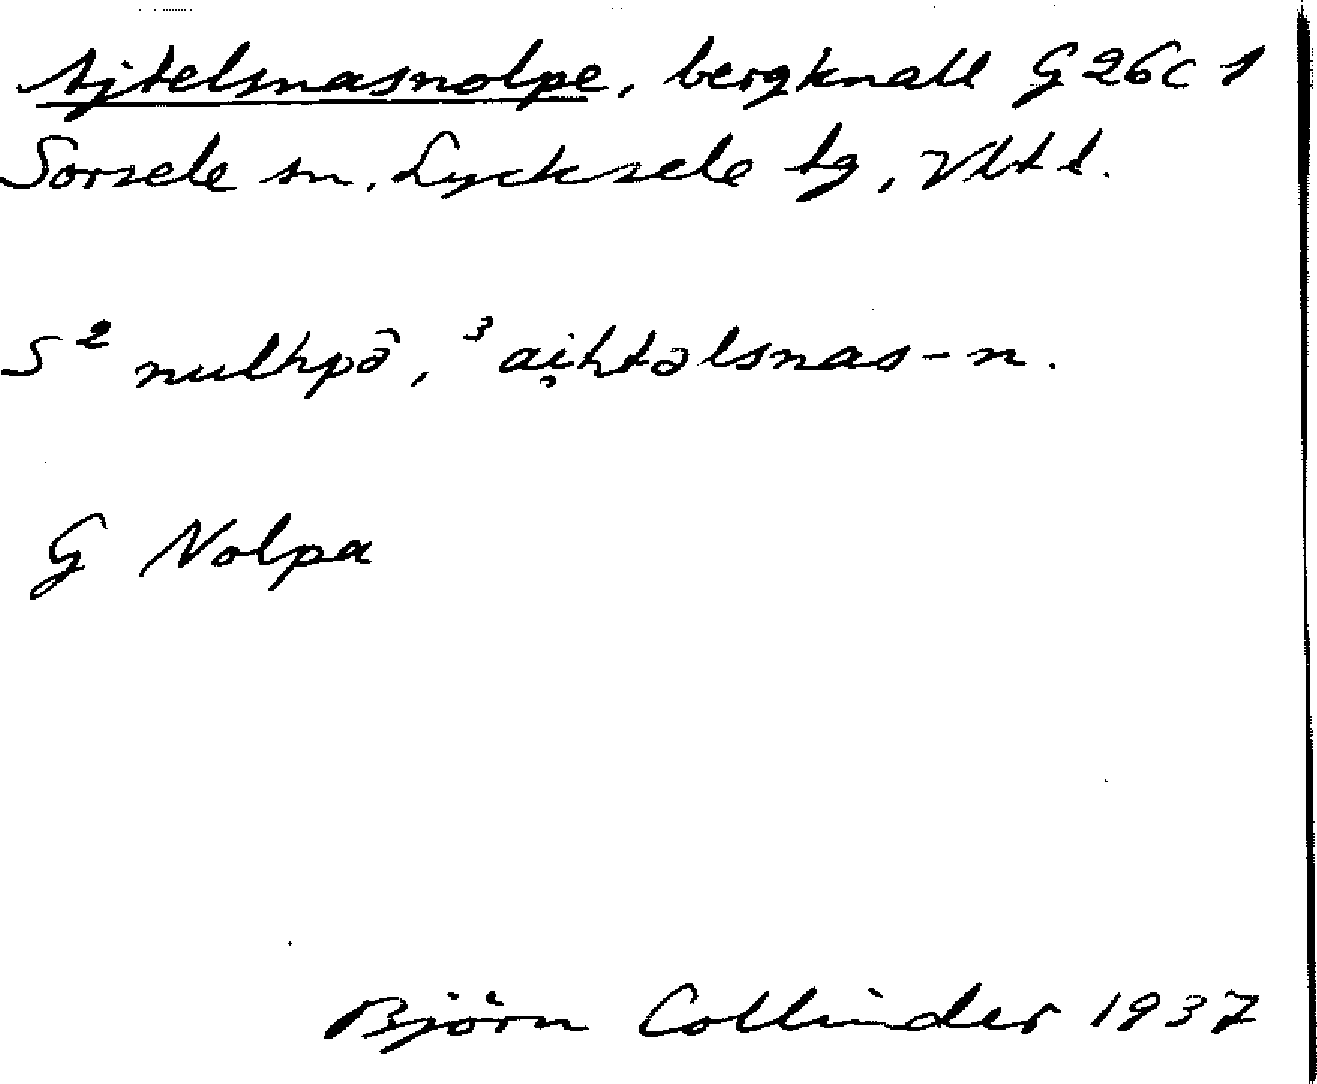 Ajtelsnasnolpe, bergknall G 26c 1
Sorsele sn, Lycksele lg, Vltl.
S ² nulhpə̑, ³ ai̯htəlsnas-n.
G Nolpa
Björn Collinder 1937